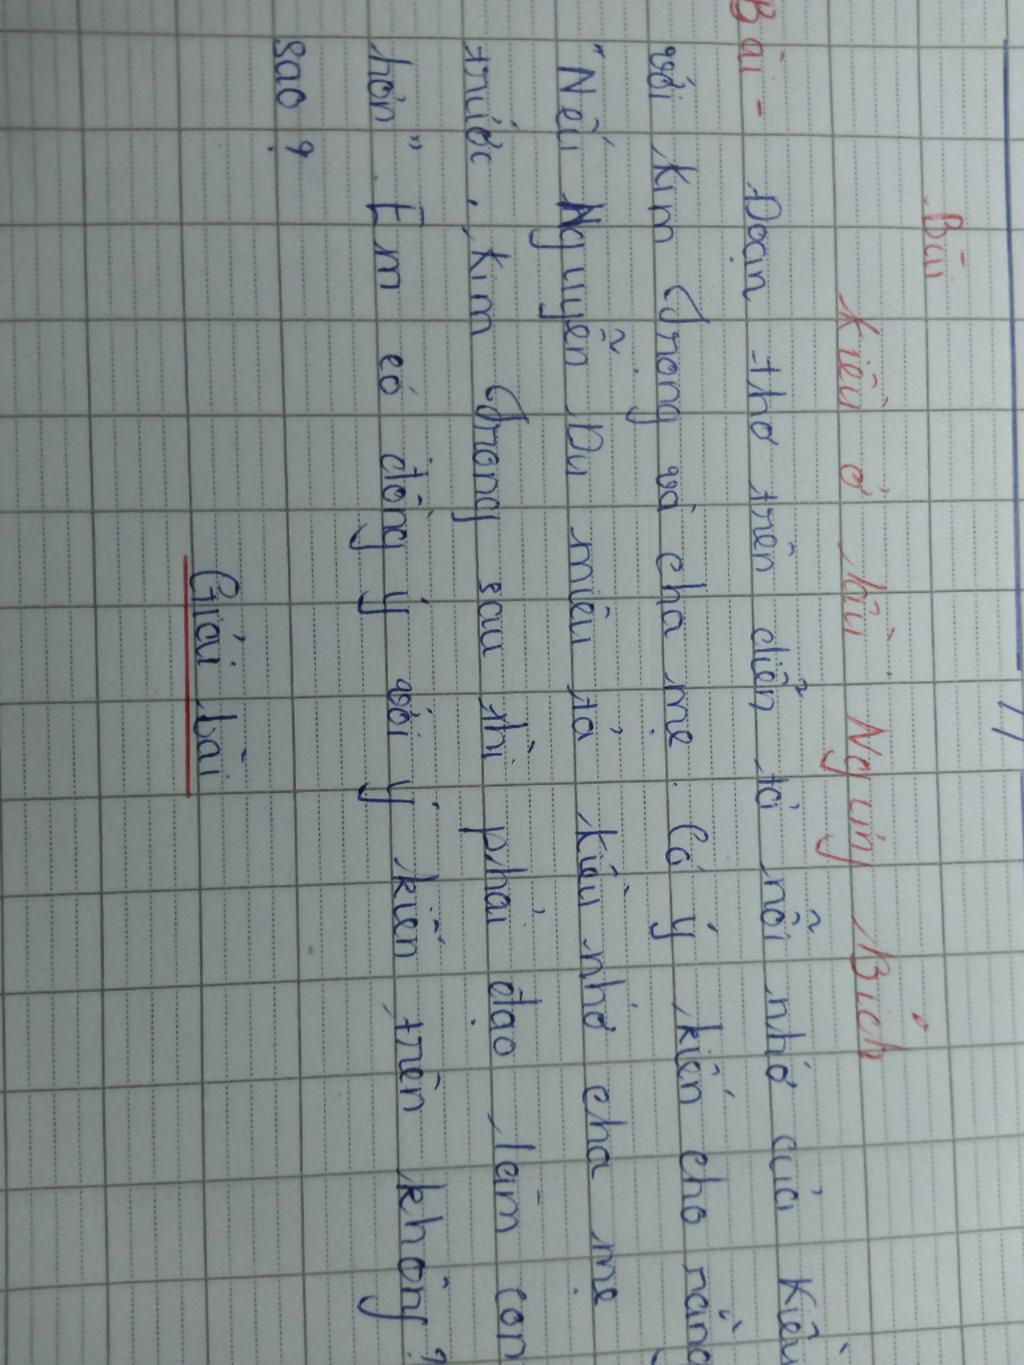 Bài
Kiều ở lầu Ngưng Bích
Bài - Đoạn thơ trên diễn tả nỗi nhớ của Kiều
với Kim Trọng và cha mẹ. Có ý kiến cho rằng
"Nếu Nguyễn Du miêu tả Kiều nhớ cha mẹ
trước, Kim Trọng sau thì phải đạo làm con
hơn". Em có đồng ý với ý kiến trên không?
sao?
Giải bài